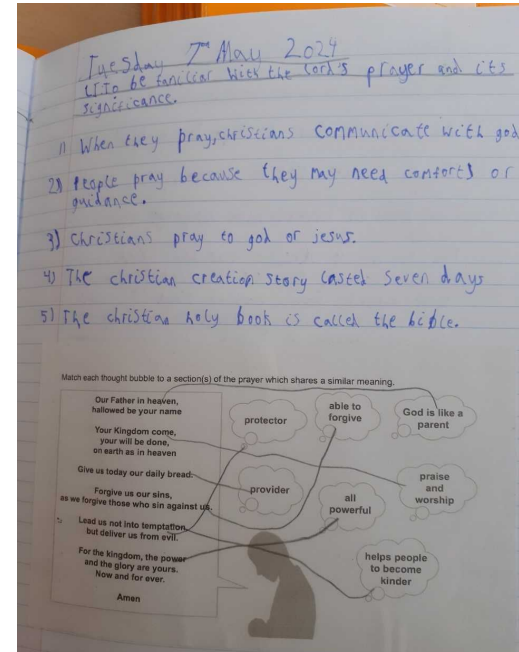 Tuesday 7th May 2024
LI To be familiar with the Lord's prayer and its
significance.
1) When they pray, christians communicate with god
2) People pray because they may need comforts or
guidance.
3) Christians pray to god or jesus.
4) The christian creation story lasted seven days
5) The christian holy book is called the bible.
Match each thought bubble to a section(s) of the prayer which shares a similar meaning.
Our Father in heaven,
hallowed be your name
Your Kingdom come,
your will be done,
on earth as in heaven
Give us today our daily bread.
Forgive us our sins,
as we forgive those who sin against us.
Lead us not into temptation
but deliver us from evil.
For the kingdom, the power
and the glory are yours.
Now and for ever.
Amen
protector
able to
forgive
God is like a
parent
provider
all
powerful
praise
and
worship
helps people
to become
kinder